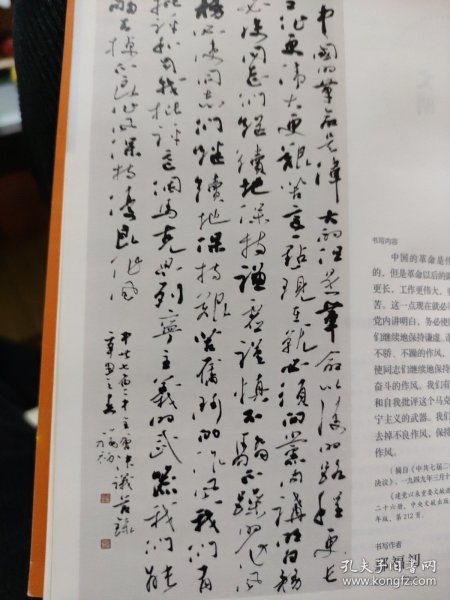 中国的革命是伟大的但是革命以后的路程更长
工作更伟大更艰苦这一点现在就必须向党内讲明白务
必使同志们继续地保持谦虚谨慎不骄不躁的作风
务必使同志们继续地保持艰苦奋斗的作风我们有
批评和自我批评这个马克思列宁主义的武器我们能
够去掉不良作风保持优良作风
中共七届二中全会决议节录
辛丑之春
书写内容
中国的革命是伟
的，但是革命以后的路
更长，工作更伟大，更
苦。这一点现在就必须
党内讲明白，务必使同
们继续地保持谦虚、谨
不骄、不躁的作风，
使同志们继续地保持
奋斗的作风。我们有
和自我批评这个马克
宁主义的武器。我们
去掉不良作风，保持
作风。
（摘自《中共七届二
决议》，一九四九年三月十
《建党以来重要文献选
二十六册，中央文献出版
年版，第212页
书写作者
孔夫子旧书网